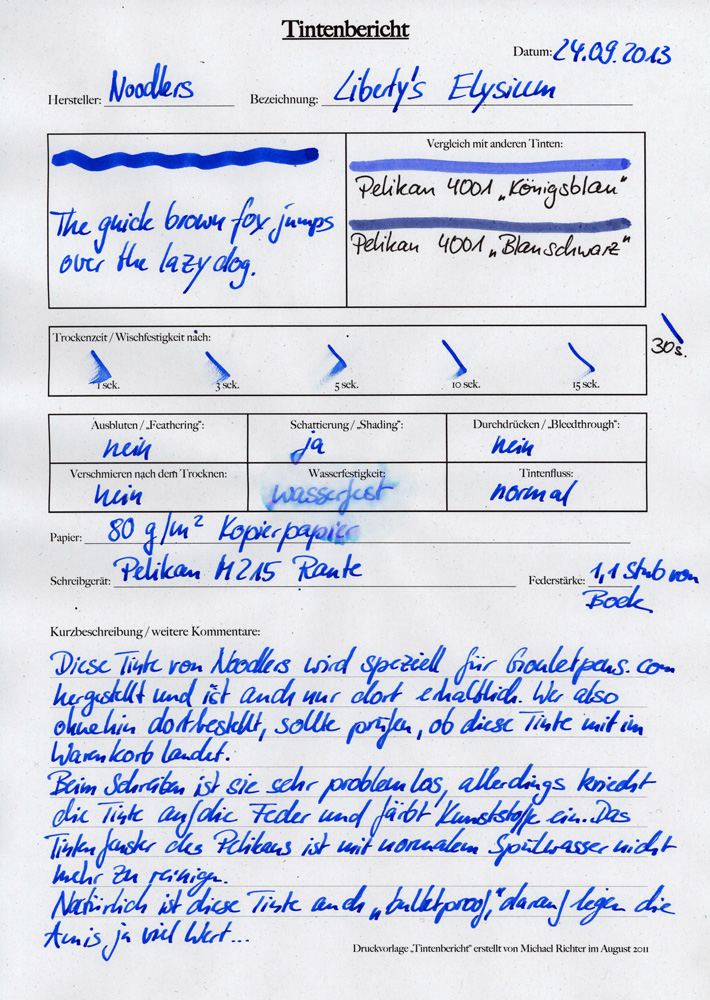 Tintenbericht
Datum: 24.09.2013
Hersteller: Noodlers Bezeichnung: Liberty's Elysium
Vergleich mit anderen Tinten:
Pelikan 4001 „Königsblau"
The quick brown fox jumps
over the lazy dog.
Pelikan 4001 „Blauschwarz"
Trockenzeit / Wischfestigkeit nach:
1 sek. 3 sek. 5 sek. 10 sek. 15 sek. 30s.
Ausbluten / „Feathering": Schattierung / „Shading": Durchdrücken / „Bleedthrough":
nein ja nein
Verschmieren nach dem Trocknen: Wasserfestigkeit: Tintenfluss:
nein wasserfest normal
Papier: 80 g/m² Kopierpapier
Schreibgerät: Pelikan M215 Raute Federstärke: 1,1 Stub von
Bock
Kurzbeschreibung / weitere Kommentare:
Diese Tinte von Noodlers wird speziell für Gouletpens.com
hergestellt und ist auch nur dort erhältlich. Wer also
ohnehin dort bestellt, sollte prüfen, ob diese Tinte mit im
Warenkorb landet.
Beim Schreiben ist sie sehr problemlos, allerdings kriecht
die Tinte auf die Feder und färbt Kunststoffe ein. Das
Tintenfenster des Pelikans ist mit normalem Spülwasser nicht
mehr zu reinigen.
Natürlich ist diese Tinte auch „bulletproof", darauf legen die
Amis ja viel Wert...
Druckvorlage „Tintenbericht" erstellt von Michael Richter im August 2011